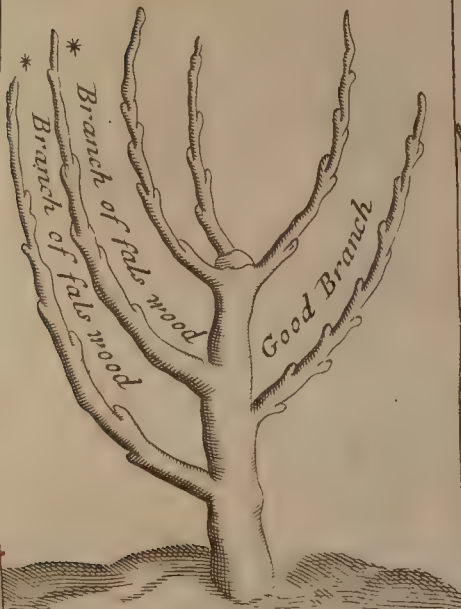 * Branch of fals wood
* Branch of fals wood
Good Branch